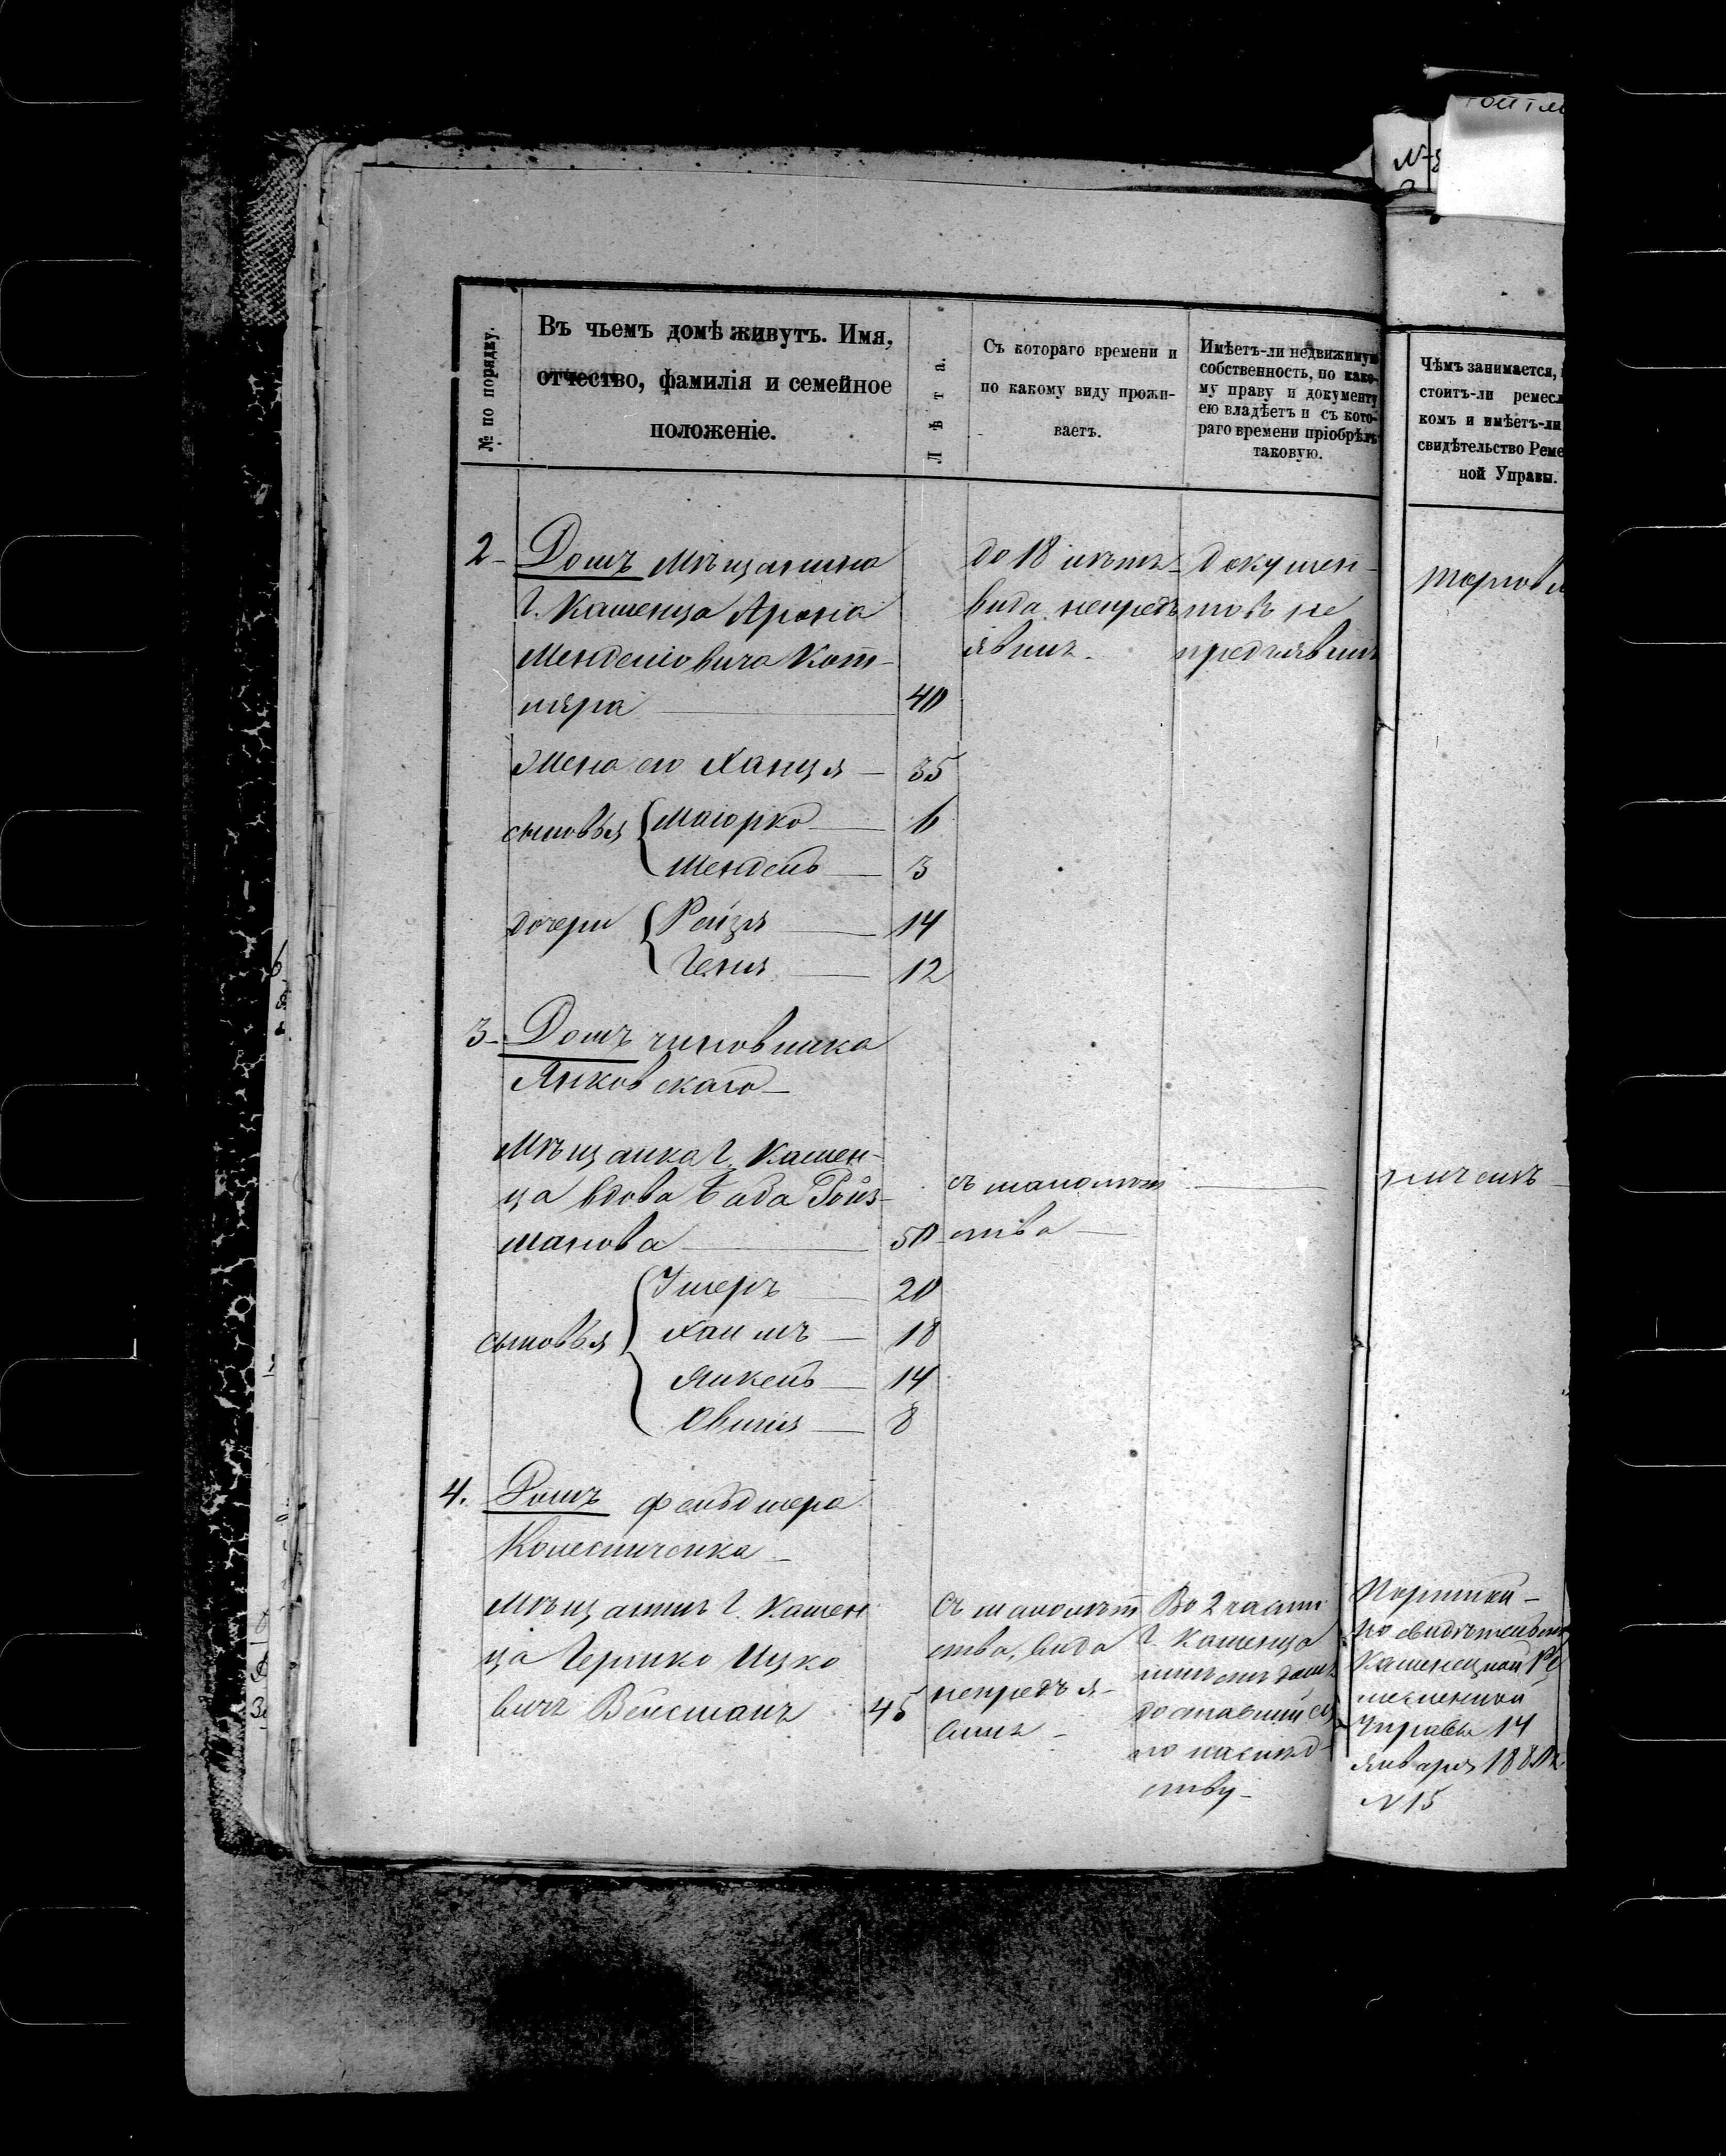 № по порядку.
Въ чьемъ домѣ живутъ. Имя,
отчество, фамилія и семейное
положеніе.
Лѣта.
Съ котораго времени и
по какому виду прожи-
ваетъ.
Имѣетъ-ли недвижимую
собственность, по како-
му праву и документу
ею владѣетъ и съ кото-
раго времени пріобрѣлъ
таковую.
Чѣмъ занимается,
стоитъ-ли ремесл
комъ и имѣетъ-ли
свидѣтельство Реме
ной Управы.
2- Домъ мѣщанина
г. Каменца Арона
Менделіовича Кот-
ляра 40
до 18 лѣтъ
вида непредъ
явилъ.
Докумен-
товъ не
предъявилъ
торговл
Жена его Ханця 35
сыновья Маіорко 6
Мендель 3
дочери Рейзя 14
Геня 12
3- Домъ чиновника
Янковскаго
Мѣщанка г. Камен-
ца вдова Баба Ройз-
манова 50
съ малолѣт
ства
сыновья Ушеръ 20
Хаимъ 18
Янкель 14
8
4. Домъ фельдшера
Колесниченка
Мѣщанинъ г. Камен
ца Гершко Ицко
вичъ Вейсманъ 45
Съ малолѣт
ства, вида
непредъя-
вилъ
Во 2 части
г. Каменца
имѣетъ домъ
доставшійся
по наслѣд-
ству
Портной
по свидѣтельст
Каменецкой Ре
месленной
Управы 14
Января 1880г.
N 15